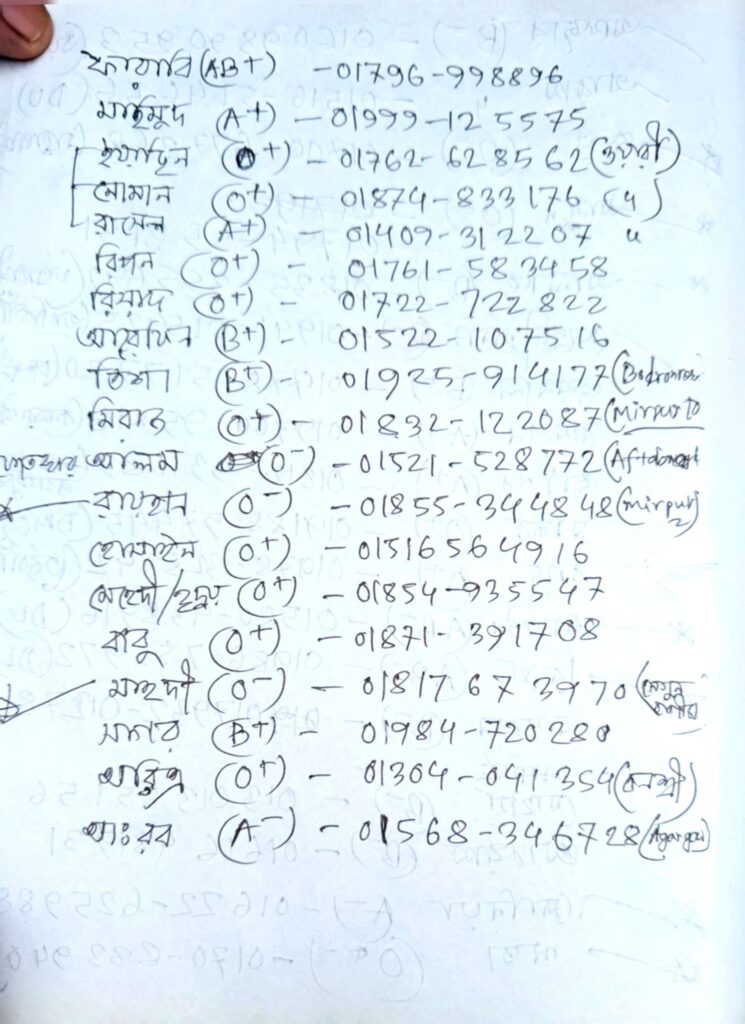 ফারাবি (AB+) - 01796-998896
মাহমুদ (A+) - 01999-125575
(O+) - 01762-628562 (ওয়ারী)
নোমান (O+) - 01874-833176 (")
রাসেল (A+) - 01409-312207 "
রিপন (O+) - 01761-583458
রিয়াদ (O+) - 01722-722822
আরেফিন (B+) - 01522-107516
তিশা (B+) - 01925-914177
মিরাজ (O+) - 01832-122087 (Mirpur 10
আলম (O-) - 01521-528772
রায়হান (O-) - 01855-344848 (Mirpur 2)
হোসাইন (O+) - 01516564916
মেহেদী/হৃদয় (O+) - 01854-935547
বাবু (O+) - 01871-391708
মাহদী (O-) - 01817673970 (সেগুন
(B+) - 01984-720280
(O+) - 01304-041354 (বনশ্রী)
আঃ রব (A-) - 01568-346728